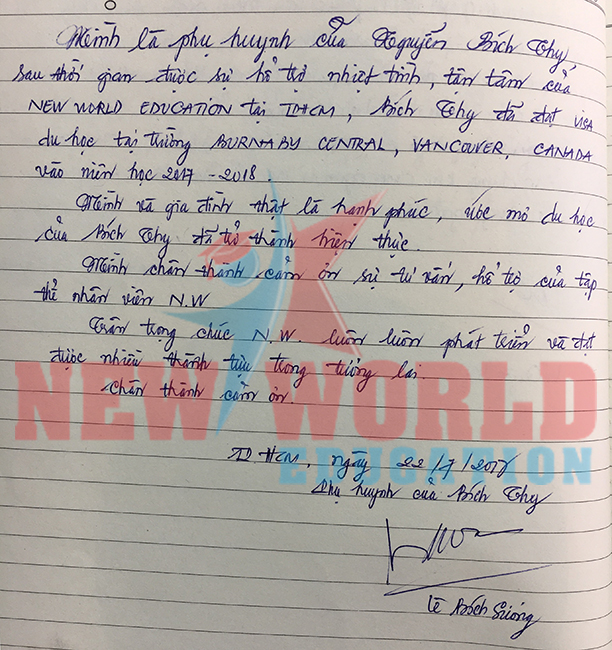 Mình là phụ huynh của Nguyễn Bích Thy,
sau thời gian được sự hỗ trợ nhiệt tình, tận tâm của
NEW WORLD EDUCATION tại TPHCM, Bích Thy đã đạt VISA
du học tại trường BURNABY CENTRAL, VANCOUVER, CANADA
vào niên học 2017 - 2018.
Mình và gia đình thật là hạnh phúc, ước mơ du học
của Bích Thy đã trở thành hiện thực.
Mình chân thành cảm ơn sự tư vấn, hỗ trợ của tập
thể nhân viên N.W
Trân trọng chúc N.W. luôn luôn phát triển và đạt
được nhiều thành tựu trong tương lai.
Chân thành cảm ơn.
NEW WORLD
EDUCATION
TP.HCM, ngày 22/7/2017
Phụ huynh của Bích Thy
Lê Bích Sương